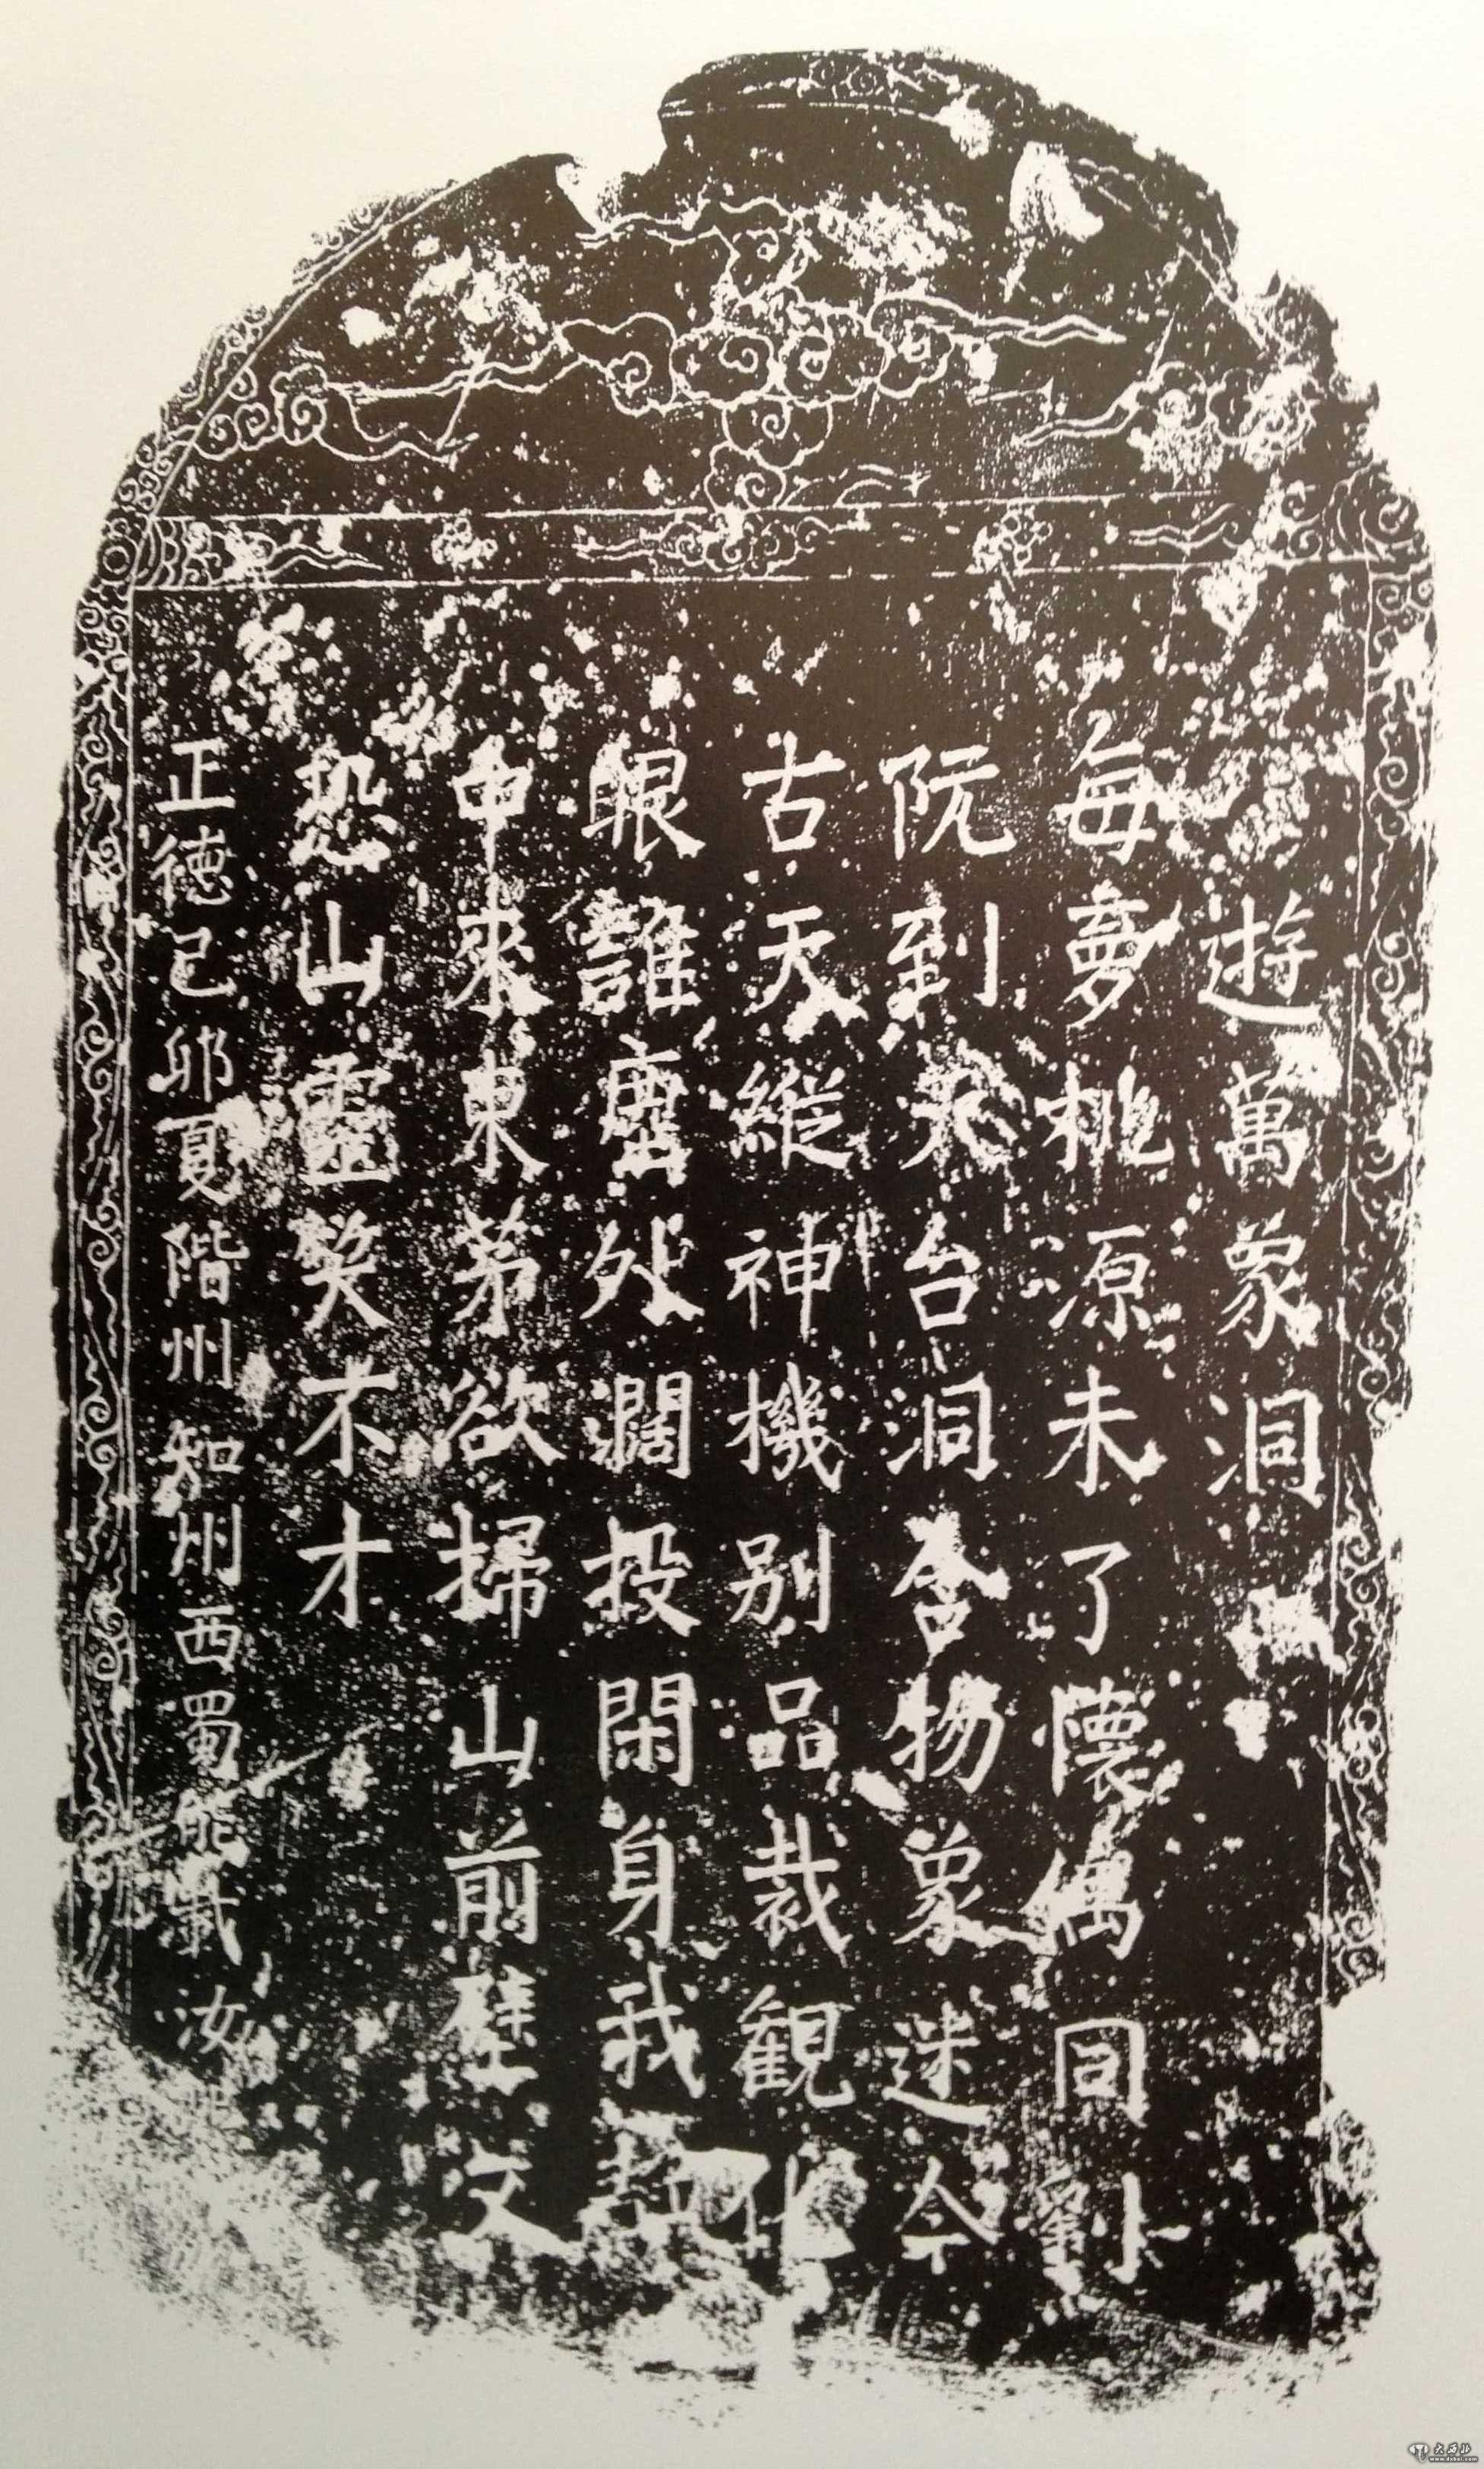 遊萬象洞
每夢桃源未了懷偶同劉
阮到天台洞含物象迷今
古天縱神機別品裁觀化
眼誰塵外濶投閑身我
申來東茅欲掃山前壁又
恐山靈笑不才
正德己卯夏階州知州西蜀熊載汝
大西北
www.dxbei.com